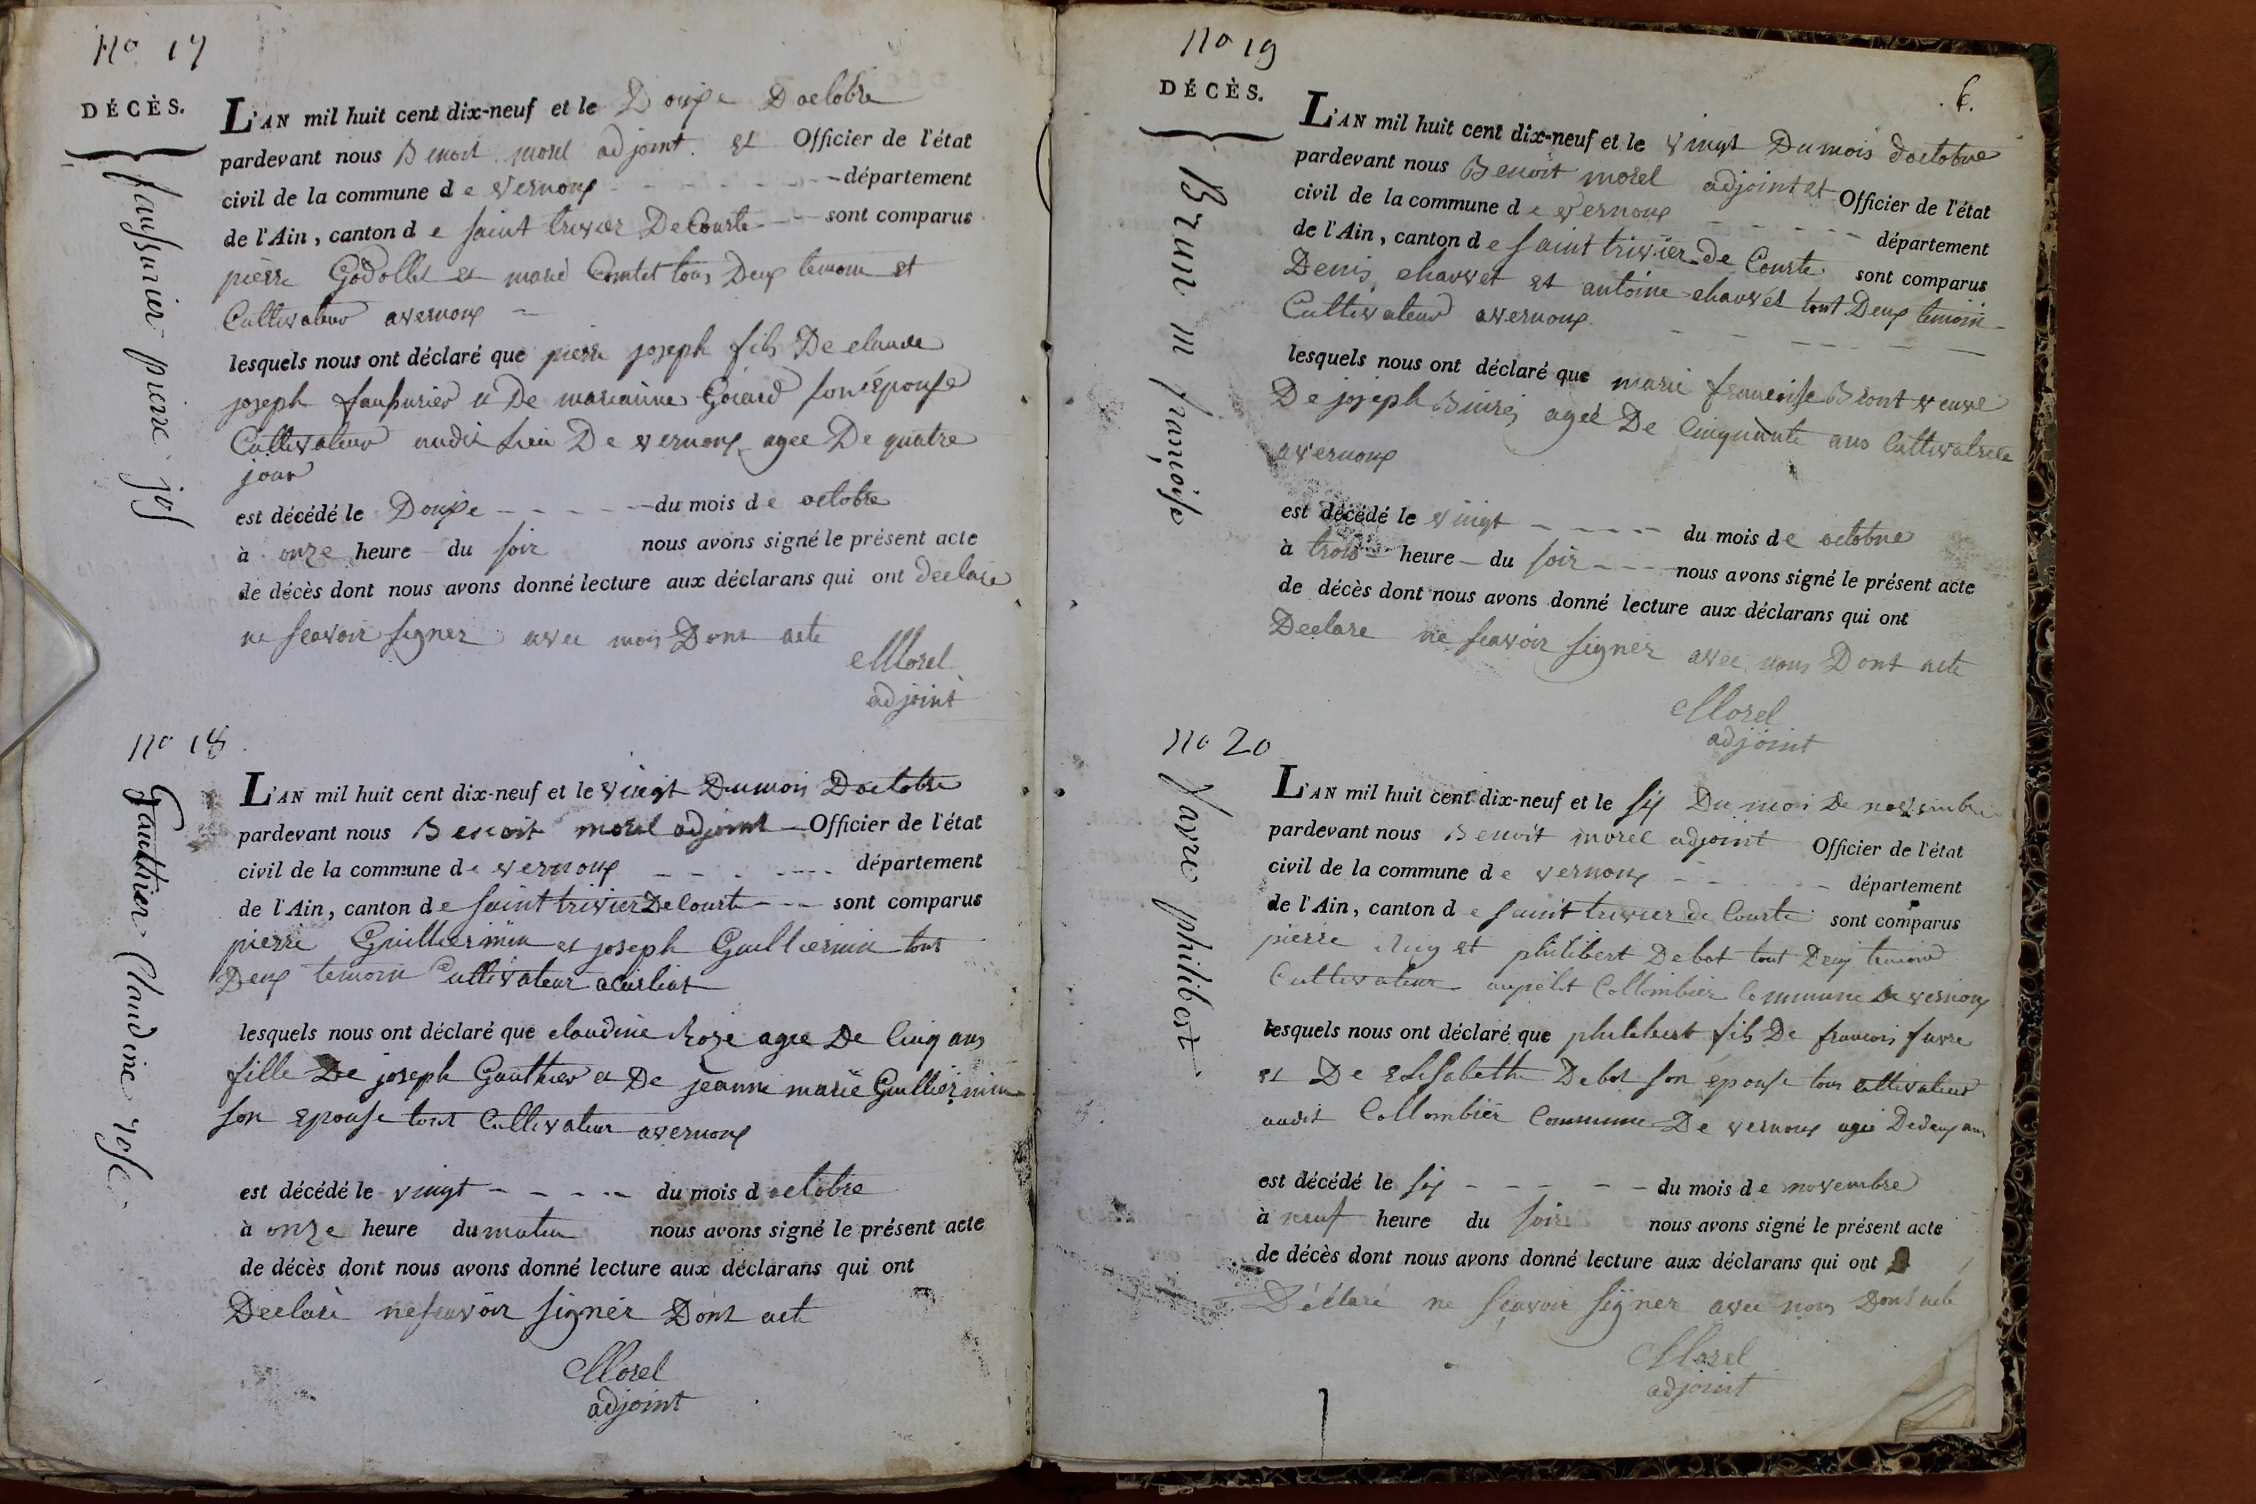 No 17
DÉCÈS.
faussurier pierre jos
L'AN mil huit cent dix-neuf et le Douze Doctobre
pardevant nous Benoit morel adjoint et Officier de l'état
civil de la commune de vernoux - - - - - - - département
de l'Ain, canton de saint trivier De Courte - - sont comparus
pierre Godollet et marie Comtet tous Deux temoin et
Cultivateur avernoux -
lesquels nous ont déclaré que pierre joseph fils De claude
joseph faussurier et De marianne Goiard son épouse
Cultivateur audit lieu De vernoux agee De quatre
jour
est décédé le Douze - - - - - du mois de octobre
à onze heure du soir nous avons signé le présent acte
de décès dont nous avons donné lecture aux déclarans qui ont declare
ne scavoir signer avec nous Dont acte
Morel
adjoint
No 18
Gauthier Claudine rose
L'AN mil huit cent dix-neuf et le vingt Dumois Doctobre
pardevant nous Benoit morel adjoint Officier de l'état
civil de la commune de vernoux - - - - - département
de l'Ain, canton de saint trivier De Courte - - sont comparus
pierre Guilliermin et joseph Guilliermin tous
Deux temoin Cultivateur acurliat
lesquels nous ont déclaré que claudine Roze agee De Cinq ans
fille De joseph Gauthier et De jeanne marie Guilliermin
son epouse tous Cultivateur avernoux
est décédé le vingt - - - - - du mois d octobre
à onze heure du matin nous avons signé le présent acte
de décès dont nous avons donné lecture aux déclarans qui ont
Declaré ne scavoir signér Dont acte
Morel
adjoint
No 19
6.
DÉCÈS.
Brun m françoise
L'AN mil huit cent dix-neuf et le vingt Dumois doctobre
pardevant nous Benoit morel adjoint et Officier de l'état
civil de la commune de vernoux - - - - - département
de l'Ain, canton de saint trivier de Courte sont comparus
Denis chauvet et antoine chauvet tout Deux temoin -
Cultivateur avernoux. - - - - - -
lesquels nous ont déclaré que marie francoise Bront veuve
De joseph agée De Cinquante ans Cultivatrice
avernoux
est décédé le vingt - - - - du mois de octobre
à trois heure - du soir - - - nous avons signé le présent acte
de décès dont nous avons donné lecture aux déclarans qui ont
Declare ne scavoir signer avec nous Dont acte
Morel
adjoint
No 20
favre philibert
L'AN mil huit cent dix-neuf et le six Du mois De novembre
pardevant nous Benoit morel adjoint Officier de l'état
civil de la commune de vernoux - - - - - département
de l'Ain, canton de saint trivier de Courte sont comparus
pierre et philibert Debot tout Deux temoin
Cultivateur aupetit Collombier Commune De vernoux
lesquels nous ont déclaré que philibert fils De francois favre
et De elisabeth Debot son epouse tous cultivateur
audit Collombier Commune De vernoux agee Dedeux ans
est décédé le six - - - - - du mois de novembre
à neuf heure du soir nous avons signé le présent acte
de décès dont nous avons donné lecture aux déclarans qui ont
Déclaré ne scavoir signer avec nous Dont acte
Morel
adjoint